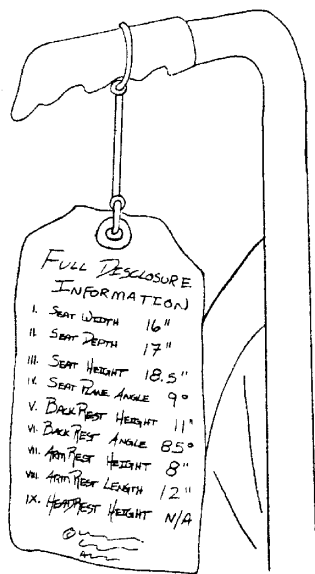 FULL DISCLOSURE
INFORMATION
I. SEAT WIDTH 16"
II. SEAT DEPTH 17"
III. SEAT HEIGHT 18.5"
IV. SEAT PLANE ANGLE 9°
V. BACKREST HEIGHT 11"
VI. BACKREST ANGLE 85°
VII. ARMREST HEIGHT 8"
VIII. ARMREST LENGTH 12"
IX. HEADREST HEIGHT N/A